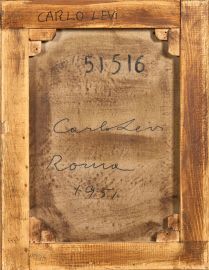 CARLO LEVI
51516
Carlo Levi
Roma
1951